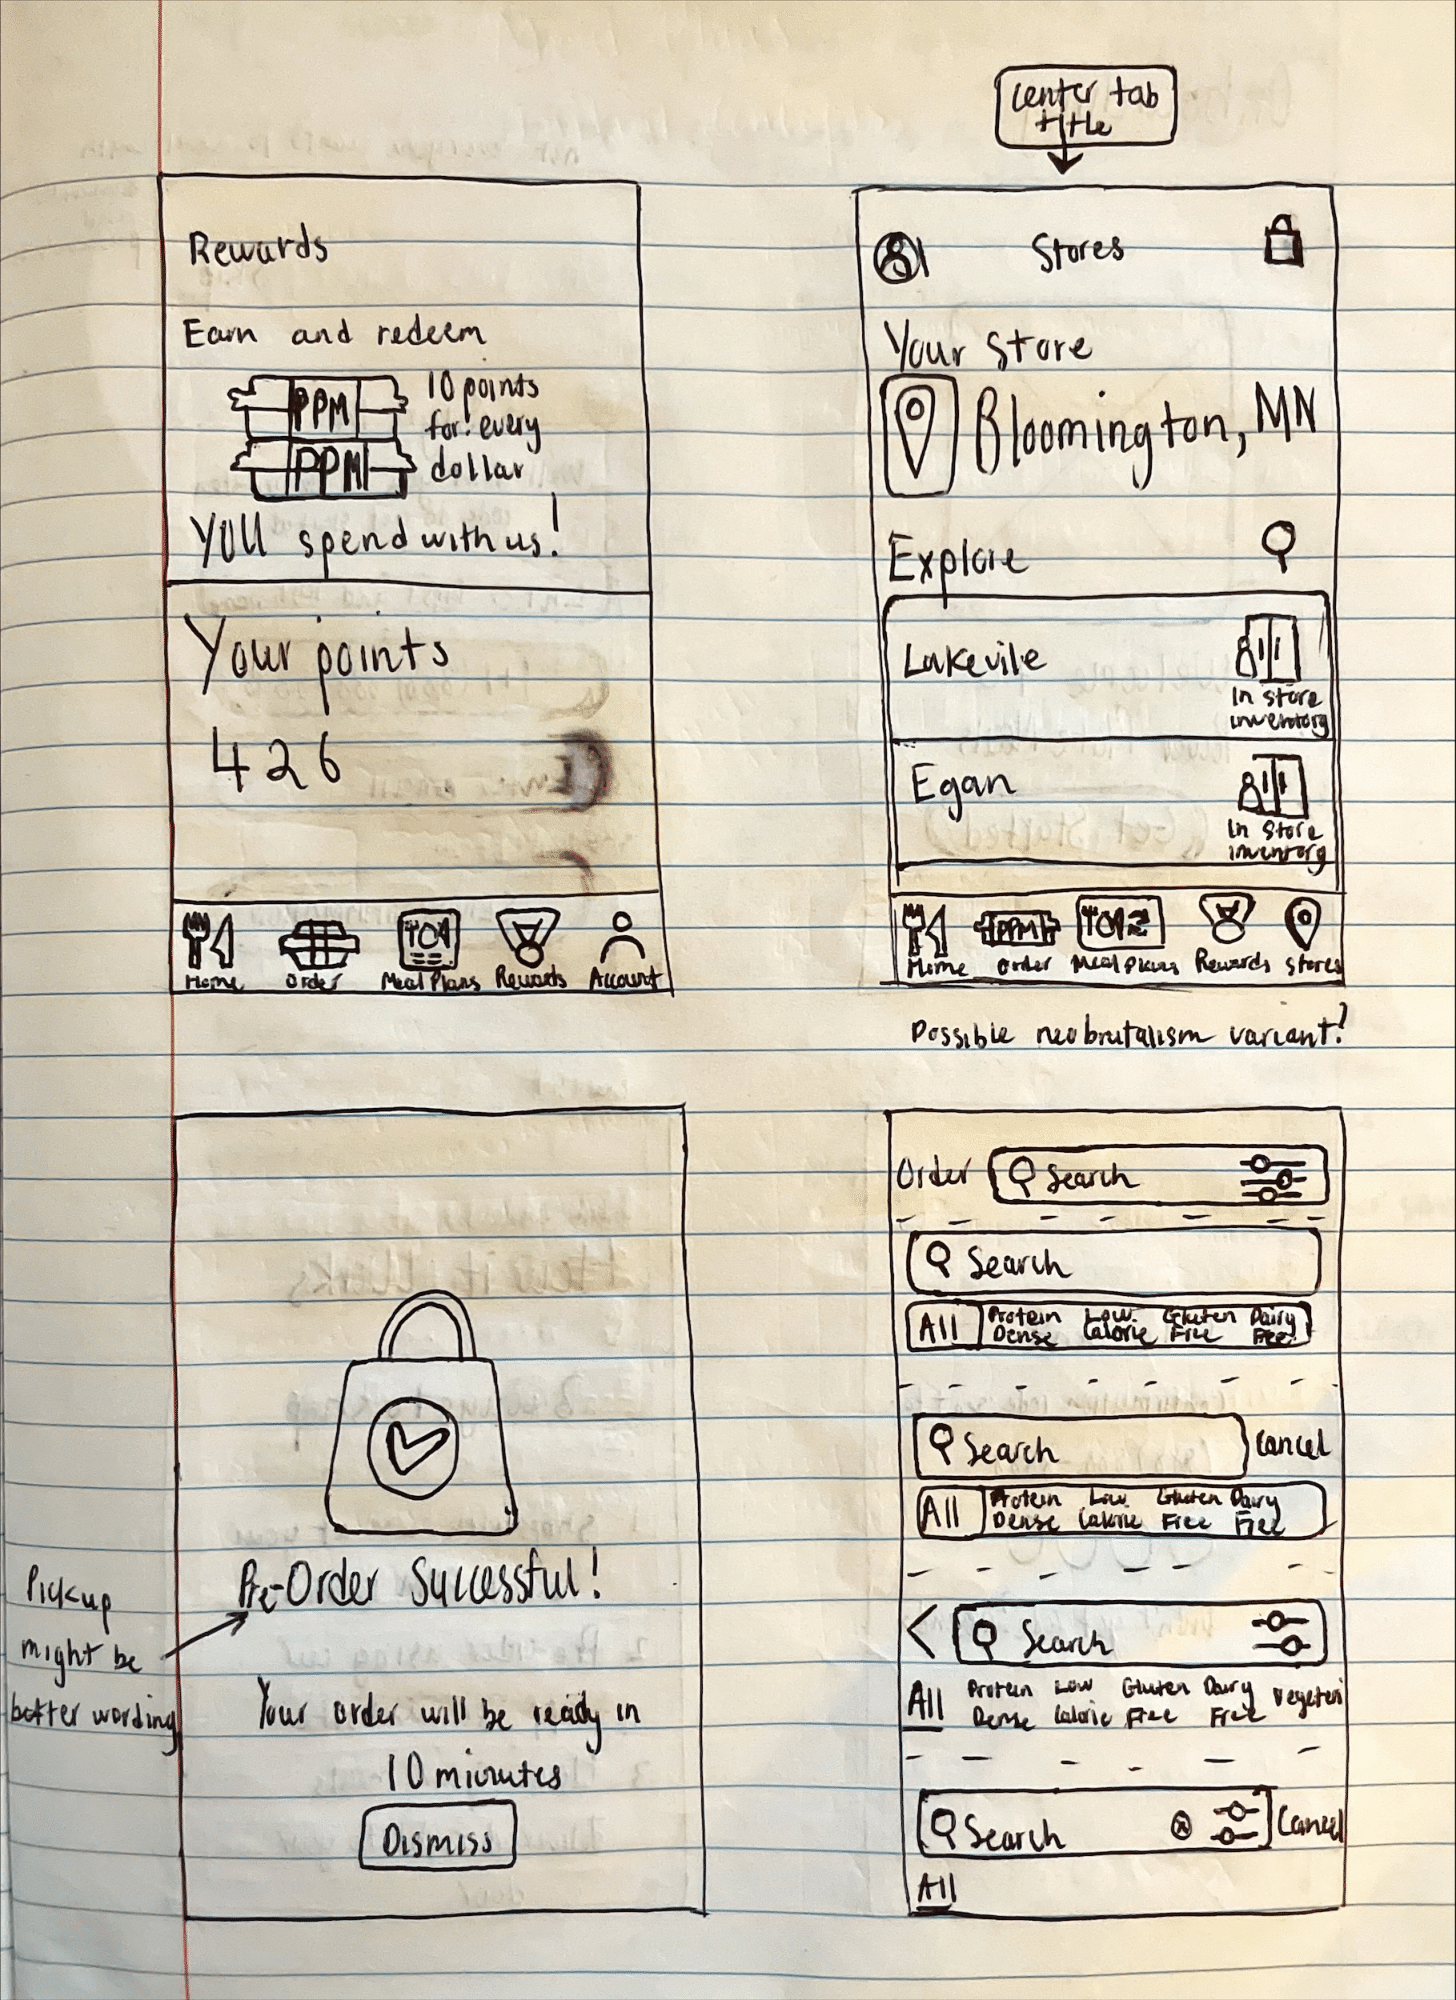 center tab
title
Rewards
Earn and redeem
PPM
PPM
10 points
for every
dollar
YOU spend with us!
Your points
426
Home
Order
Meal Plans
Rewards
Account
Stores
Your Store
Bloomington, MN
Explore
Lakevile
In store
inventory
Egan
In store
inventory
PPM
Home
Order
Meal Plans
Rewards
Stores
Possible neobrutalism variant?
Pickup
might be
better wording
Pre-Order Successful!
Your order will be ready in
10 minutes
Dismiss
Order
Search
Search
All
Protein
Dense
Low
Calorie
Gluten
Free
Dairy
Free
Search
Cancel
All
Protein
Dense
Low
Calorie
Gluten
Free
Dairy
Free
Search
All
Protein
Dense
Low
Calorie
Gluten
Free
Dairy
Free
Search
Cancel
All